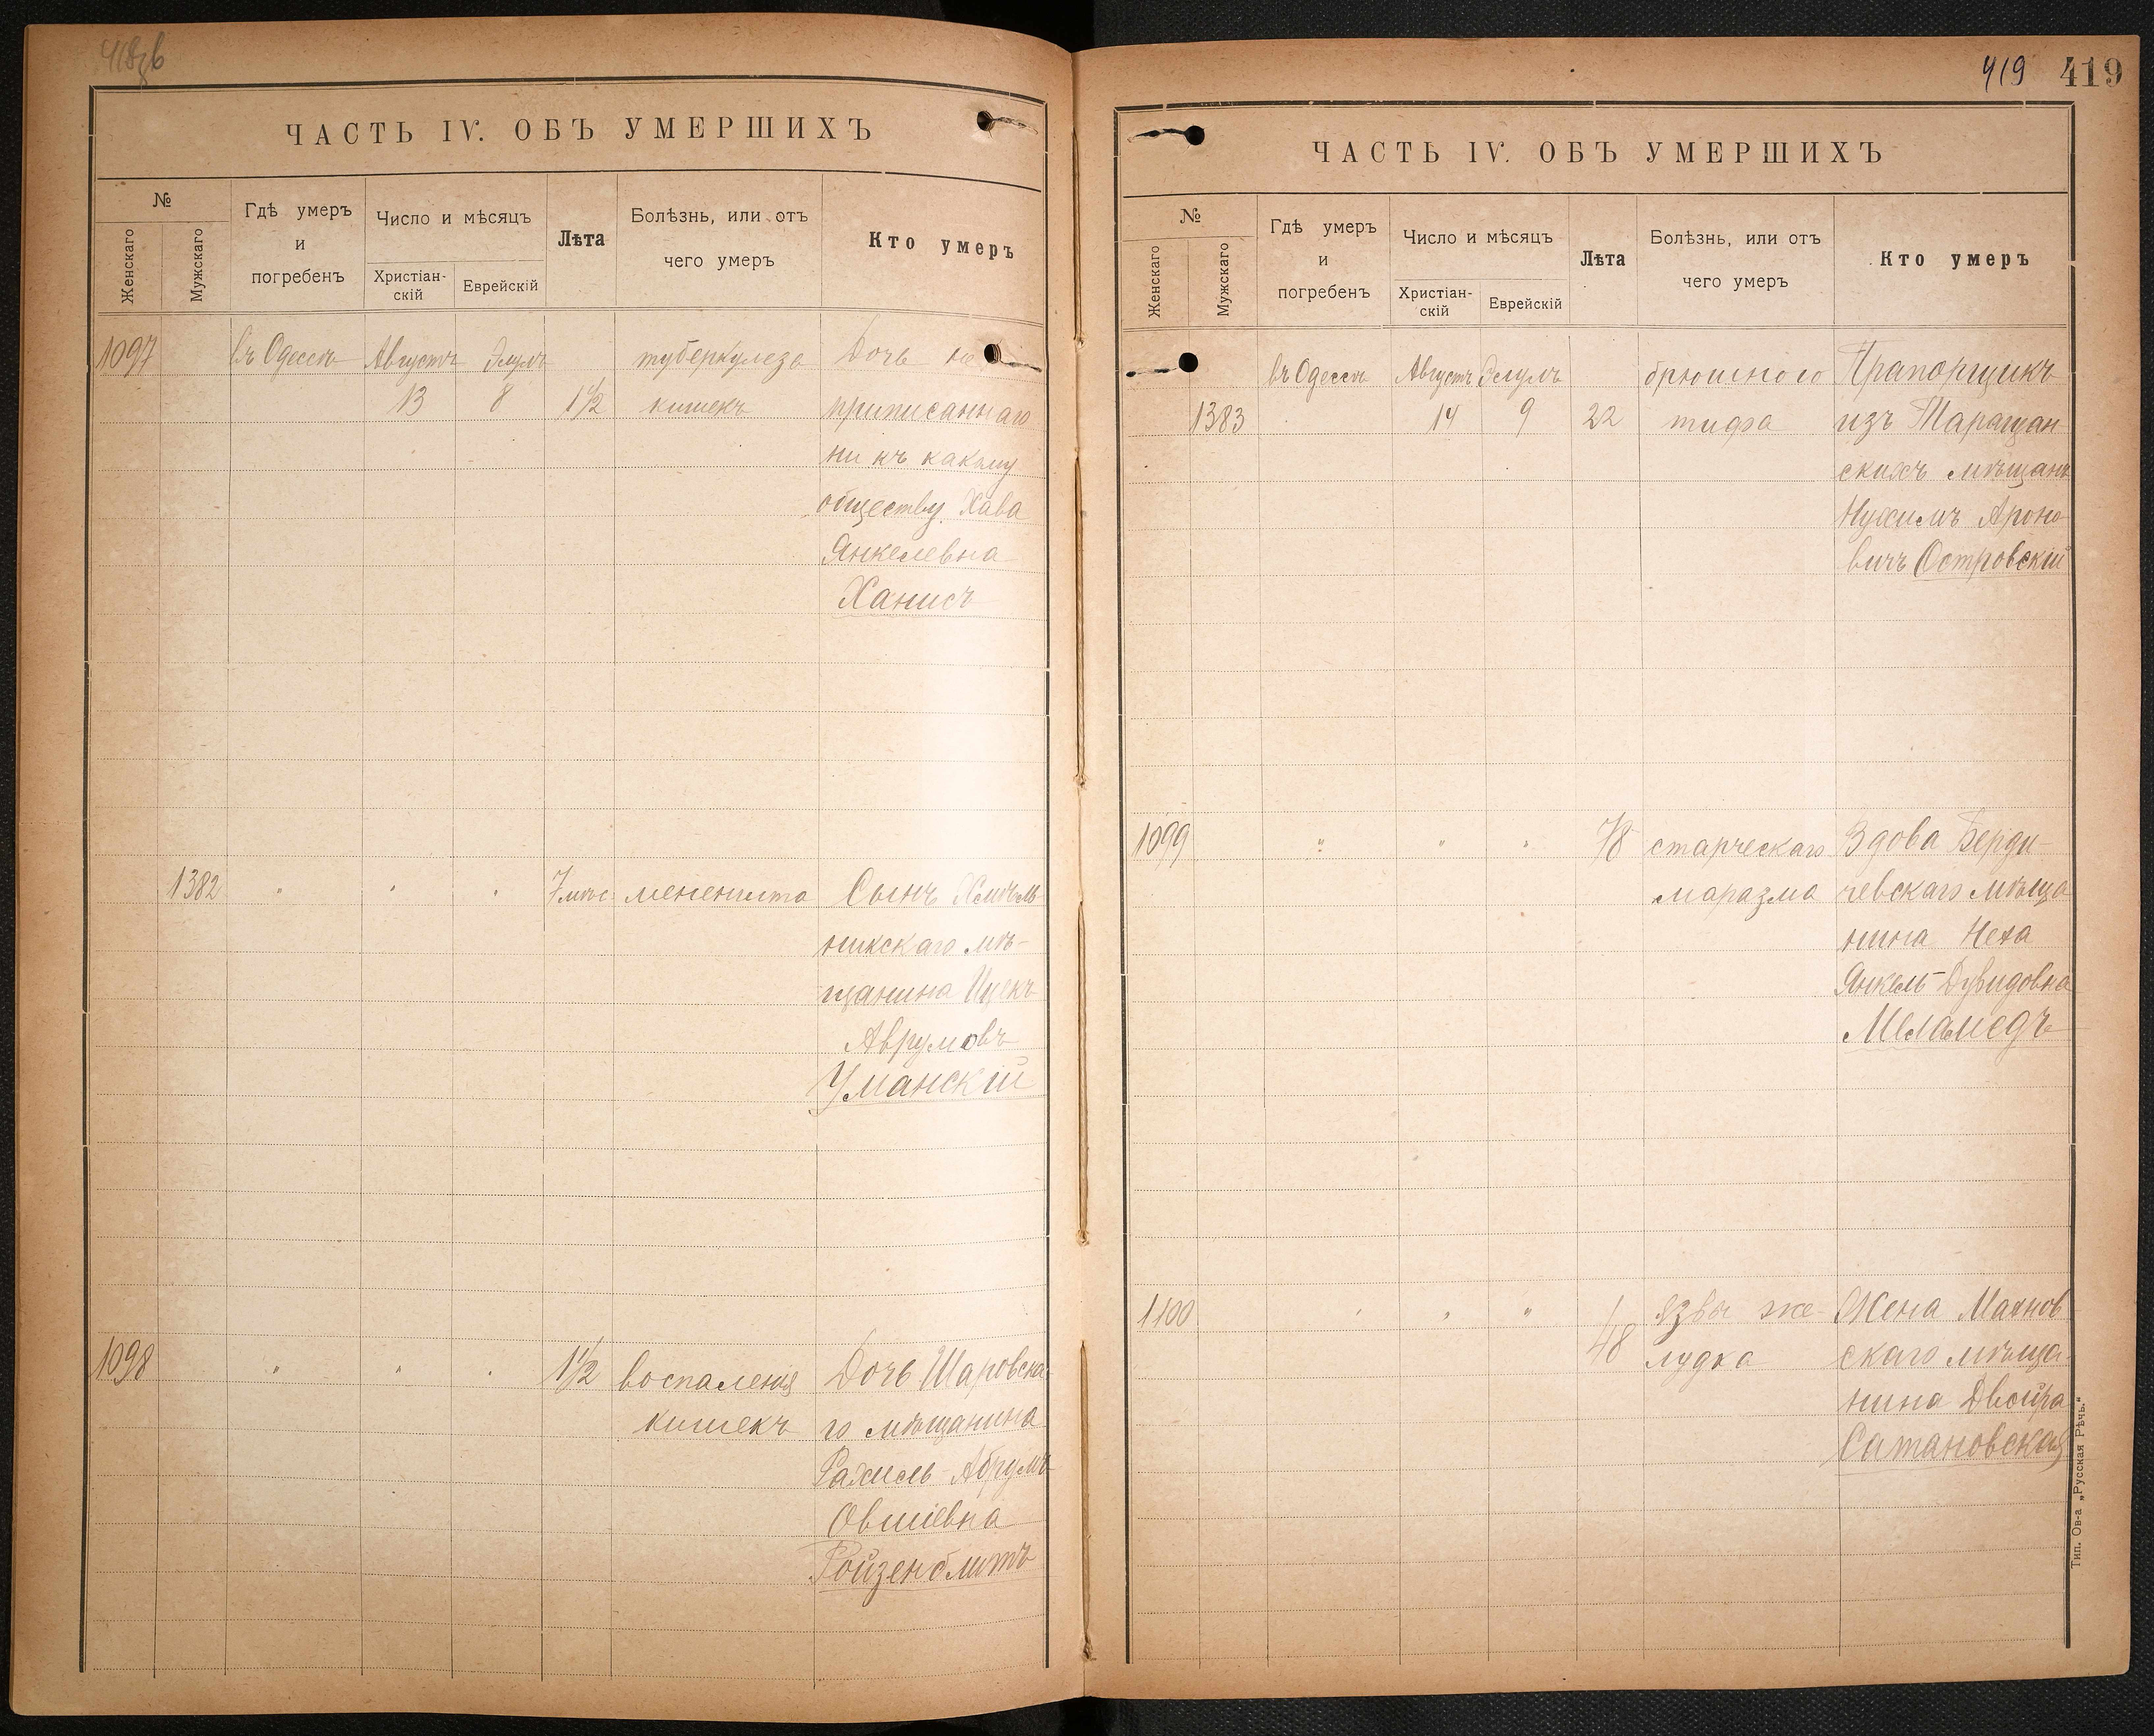 ЧАСТЬ IV. ОБЪ УМЕРШИХЪ
№
Женскаго
Мужскаго
Гдѣ умеръ
и
погребенъ
Число и мѣсяцъ
Христіан-
скій
Еврейскій
Лѣта
Болѣзнь, или отъ
чего умеръ
Кто умеръ
1097 въ Одессѣ Августъ Элулъ туберкулеза Дочь не
13 8 1½ кишекъ приписаннаго
ни къ какому
обществу Хава
Янкелевна
Ханисъ
1382 " " " 7 мѣс. мененгита Сынъ Хмѣль
никскаго мѣ-
щанина Ицекъ
Аврумовъ
Уманскій
1098 " " " 1½ воспаленія Дочь Шаровска
кишекъ го мѣщанина
Рахиль Абрумъ
Овшіевна
Ройзенблитъ
419 419
ЧАСТЬ IV. ОБЪ УМЕРШИХЪ
№
Женскаго
Мужскаго
Гдѣ умеръ
и
погребенъ
Число и мѣсяцъ
Христіан-
скій
Еврейскій
Лѣта
Болѣзнь, или отъ
чего умеръ
Кто умеръ
въ Одессѣ Августъ Элулъ брюшного Прапорщикъ
1383 14 9 22 тифа изъ Таращан
скихъ мѣщанъ
Нухимъ Ароно
вичъ Островскій
1099 " " " 78 старческаго Вдова Берди-
маразма чевскаго мѣща
нина Неха
Янкель-Дувидовна
Меламедъ
1100 " " " 48 язвы же- Жена Махнов
лудка скаго мѣща-
нина Двойра
Сатановская
Тип. Ов-а „Русская Рѣчь."